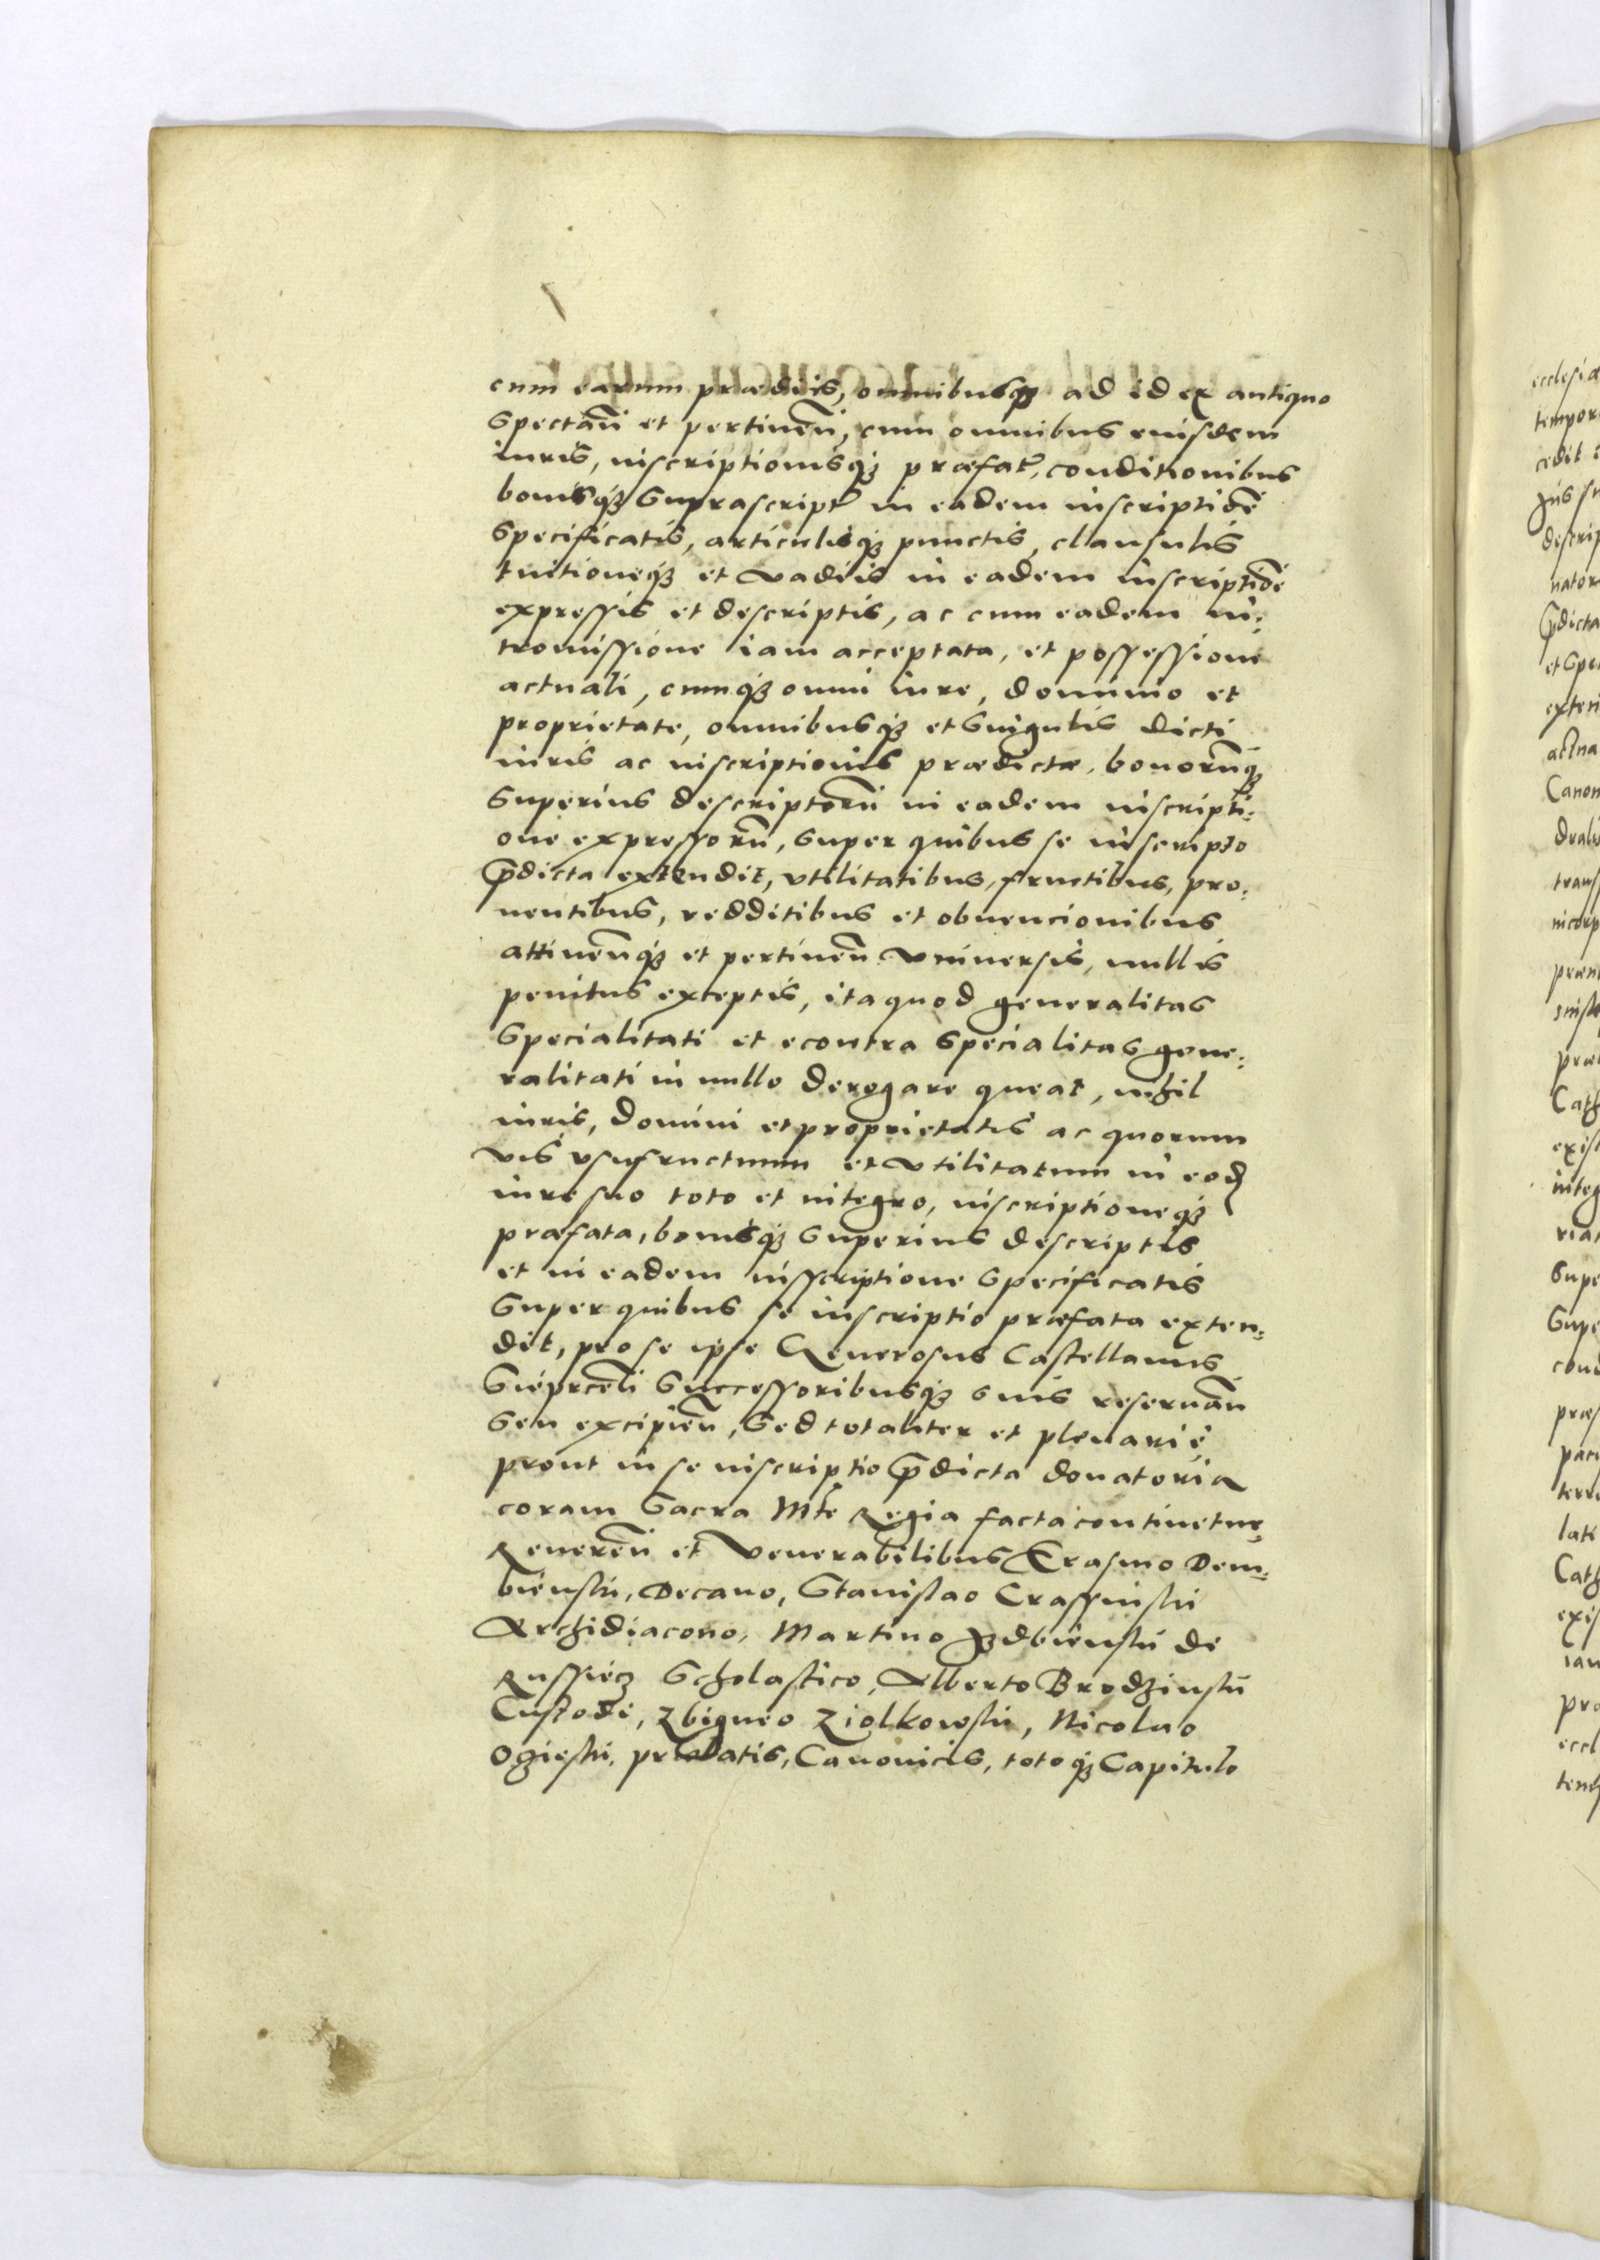 cum earum prædiis, omnibusq3 ad id ex antiquo
Spectañ et pertineñ, cum omnibus eiusdem
iuris, inscriptionisq3 præfat, conditionibus
bonisq3 Suprascript in eadem inscriptiõe
Specificatis, articulisq3 punctis, clausulis
tuitioneq3 et vadiis in eadem inscriptiõe
expressis et descriptis, ac cum eadem in:
tromissione iam acceptata, et possessione
actuali, cumq3 omni iure, dominio et
proprietate, omnibusq3 et Singulis dicti
iuris ac inscriptionis prædictæ, bonorũq3
Superius descriptorũ in eadem inscripti:
one expressorũ, super quibus se inscriptio
p̃dicta extendit, vtilitatibus, fructibus, pro:
uentibus, redditibus et obuencionibus
attineñq3 et pertineñ vniuersis, nullis
penitus exceptis, ita quod generalitas
Specialitati et econtra Specialitas gene:
ralitati in nullo derogare queat, nihil
iuris, domini et proprietatis ac quorum
vis vsufructuum et vtilitatum in eod
iure suo toto et integro, inscriptioneq3
præfata, bonisq3 Superius descriptis
et in eadem insscriptione Specificatis
Super quibus se inscriptio præfata exten:
dit, pro se ipse Generosus Castellanus
Sieprceñ Successoribusq3 suis reseruañ
Seu excipieñ, Sed totaliter et plenarie
prout in se inscriptio p̃dicta donatoria
coram Sacra Mte Regia facta continetur
Reuereñ et Venerabilibus Erasmo Dem:
bienski, Decano, Stanislao Crassinski
Archidiacono, Martino Izdbienski de
Russiecz Scholastico, Alberto Brodzinski
Custode, Zbigneo Ziolkowski, Nicolao
Ogieski, prælatis, Canonicis, totoq3 Capitulo
ecclesiæ
tempor
cedit
descrip
nator
p̃dicta
et Spe
Canon
trans
Cath
exis
integ
Supe
Supe
cond
præs
terr
lati
Cath
exis
pro
eccl